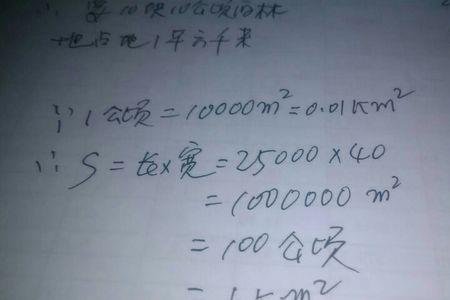 ∴ 每10块10公顷的林
地占地1平方千米
∵ 1公顷=10000m²=0.01km²
∴ S=长×宽=25000×40
=1000000 m²
=100公顷
=1km²